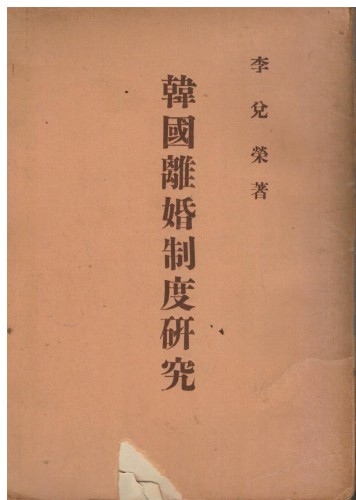 李兌榮著
韓國離婚制度硏究